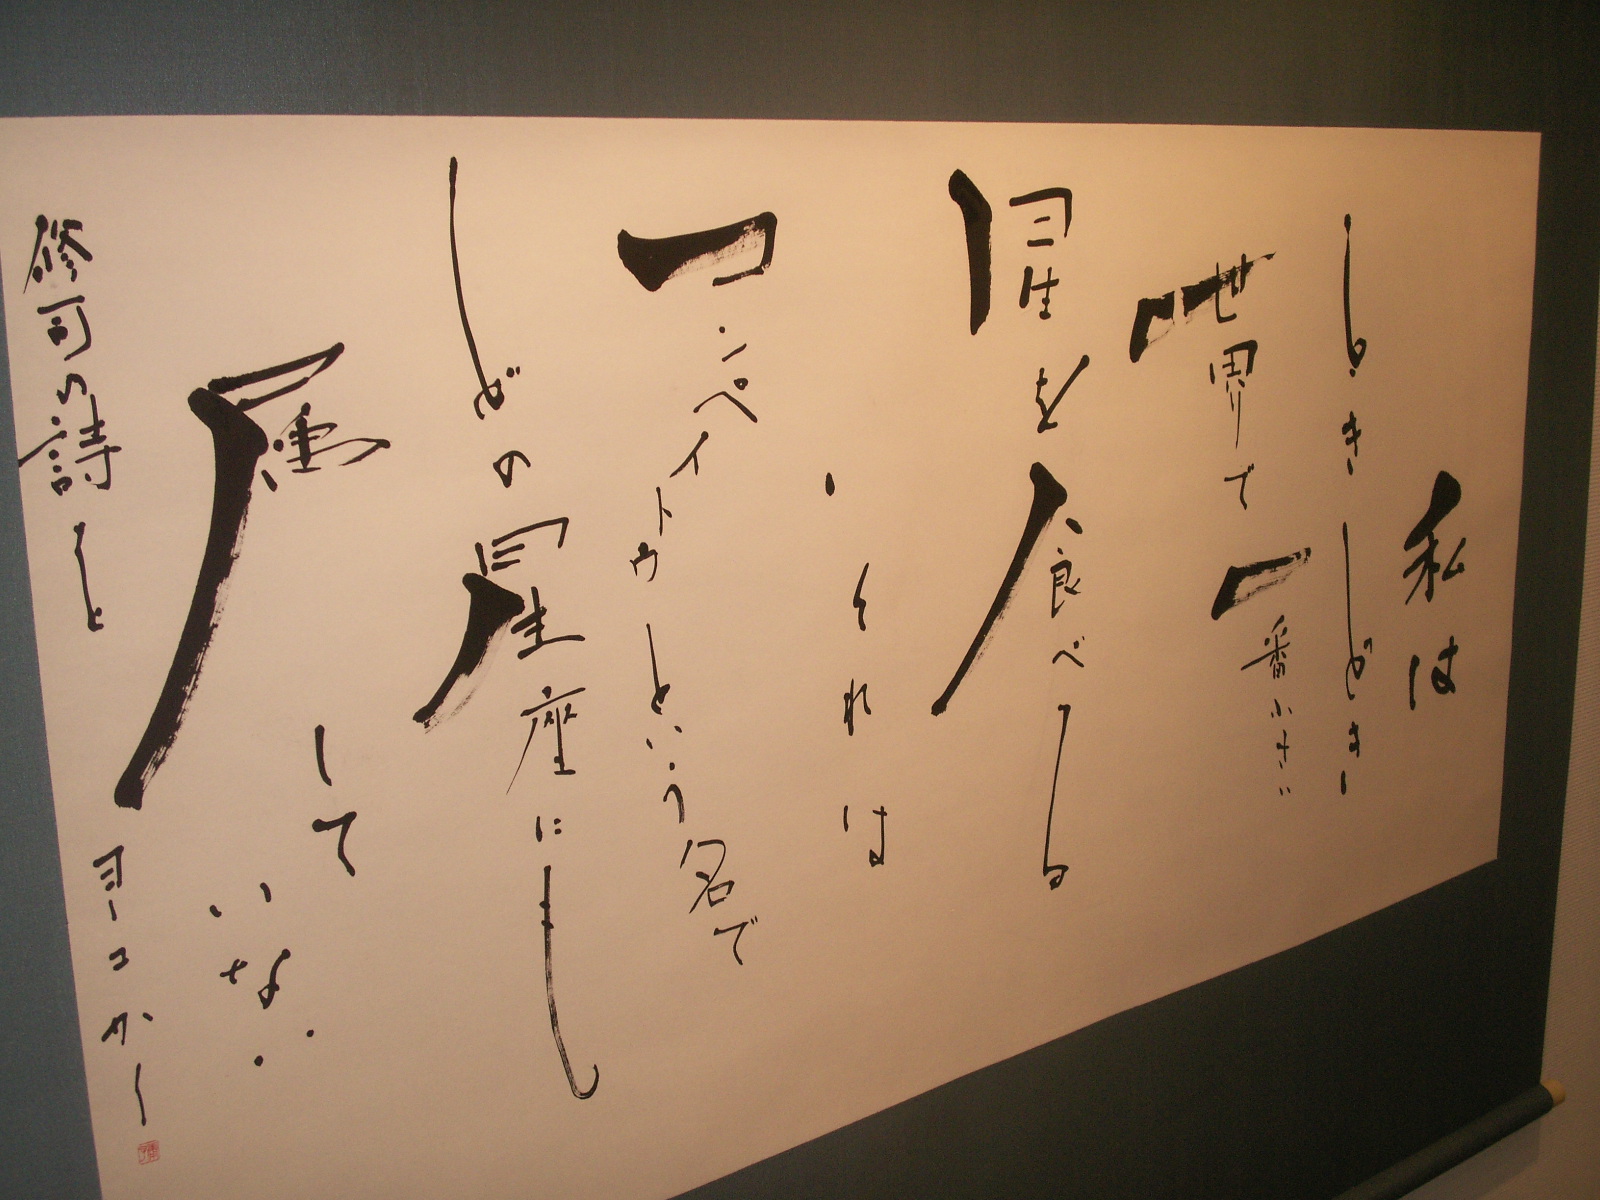 私は
ときどき
世界で一番小さい
星を食べる
それは
コンペイトウという名で
どの星座にも
属して
いない
修司の詩を
ヨーコかく